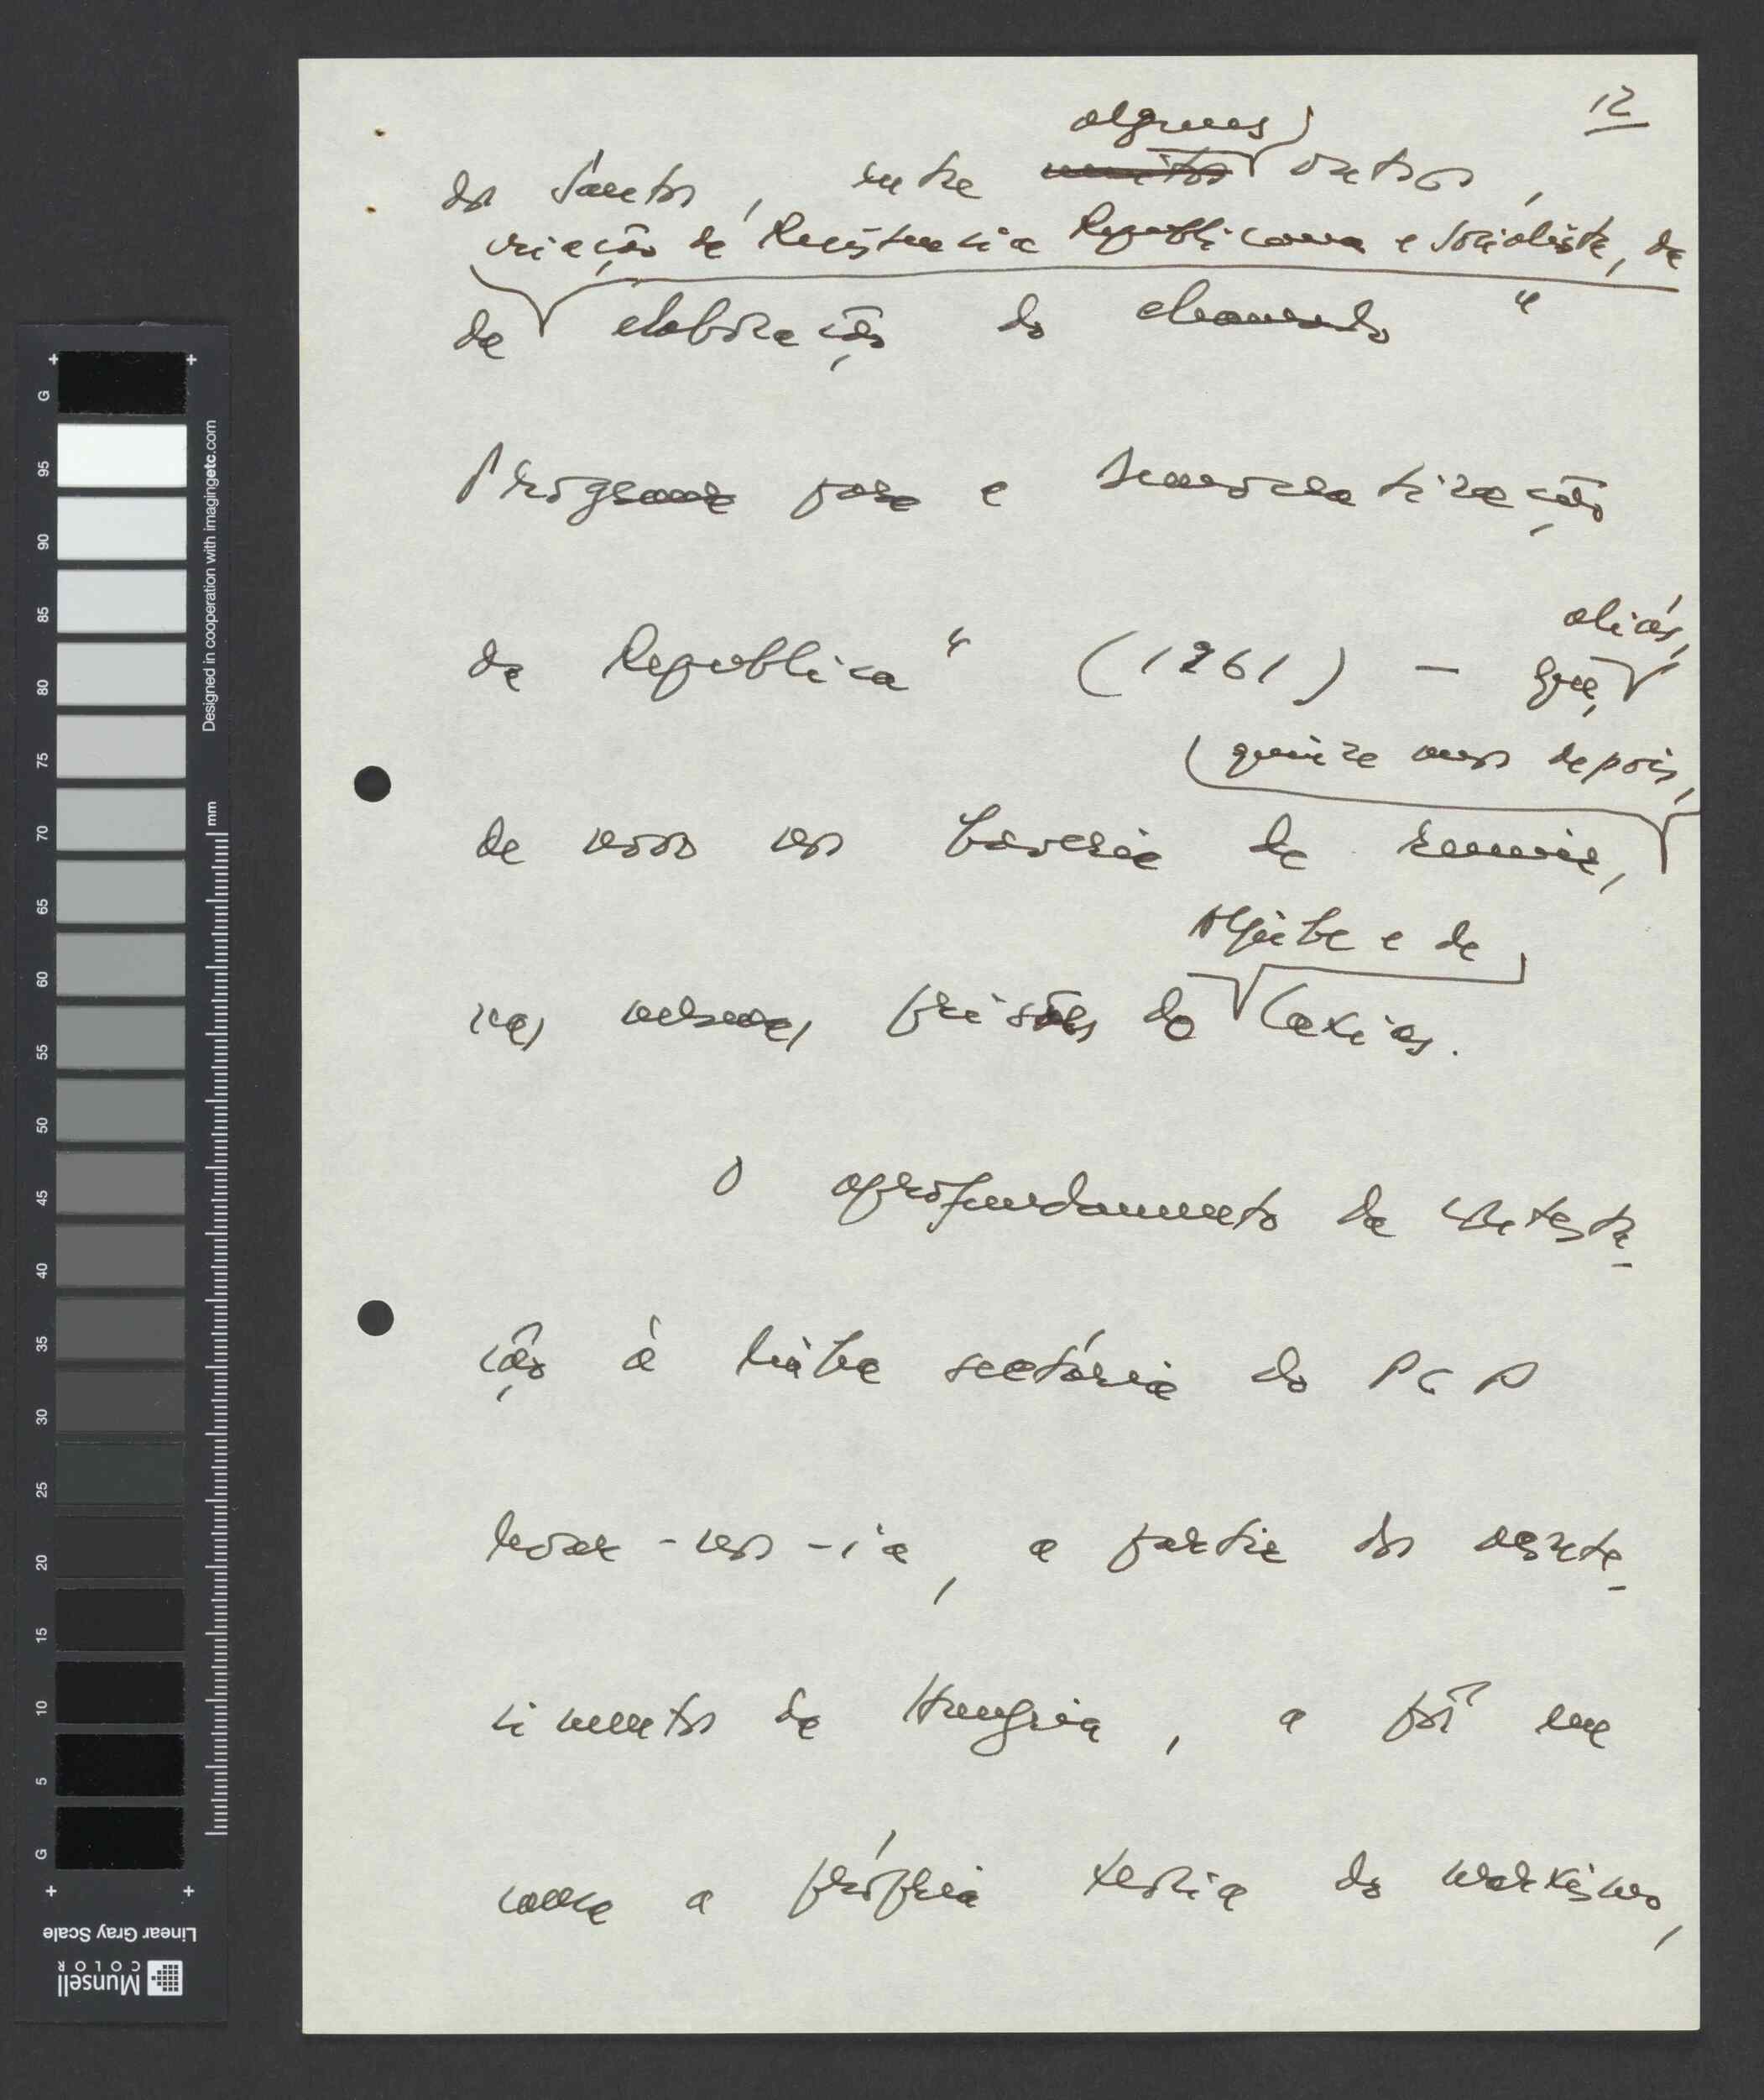 12
algumas
dos Santos, entre muitos outros,
criação da Resistência Republicana e Socialista, da
da elaboração do chamado "
Programa para a Democratização
da Republica" (1961) — que,
aliás,
quinze anos depois,
de novo nos haveria de reunir,
Aljube e de
nas mesmas prisões do Caxias.
O aprofundamento da contesta-
ção à linha sectária do PCP
levar-nos-ia, a partir dos aconte-
cimentos da Hungria, a pôr em
causa a própria teoria do marxismo,
G
95
90
85
80
75
70
65
60
55
50
45
40
35
30
25
20
15
10
5
G
mm
Designed in cooperation with imagingetc.com
Linear Gray Scale
Munsell
COLOR